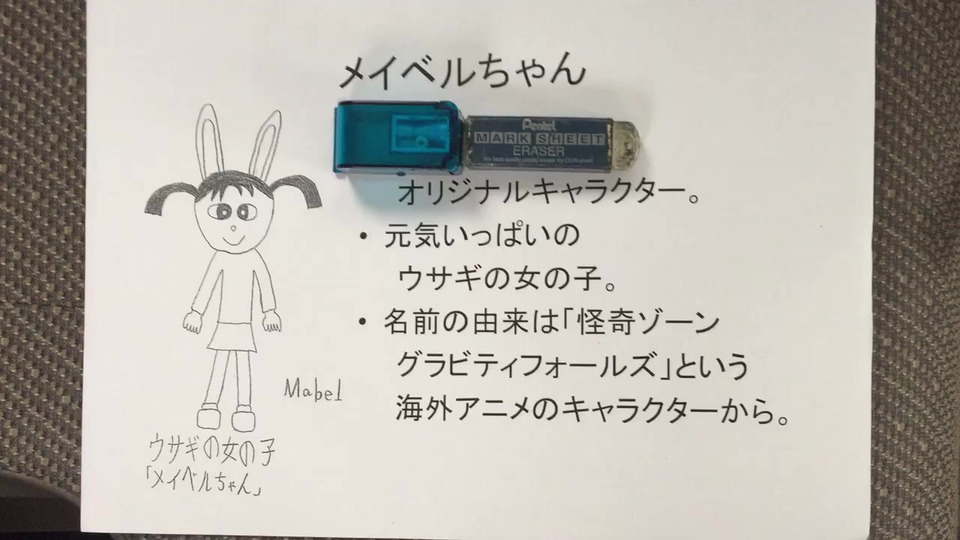 メイベルちゃん
Pentel
MARK SHEET
ERASER
オリジナルキャラクター。
・ 元気いっぱいの
ウサギの女の子。
・ 名前の由来は「怪奇ゾーン
グラビティフォールズ」という
海外アニメのキャラクターから。
Mabel
ウサギの女の子
「メイベルちゃん」